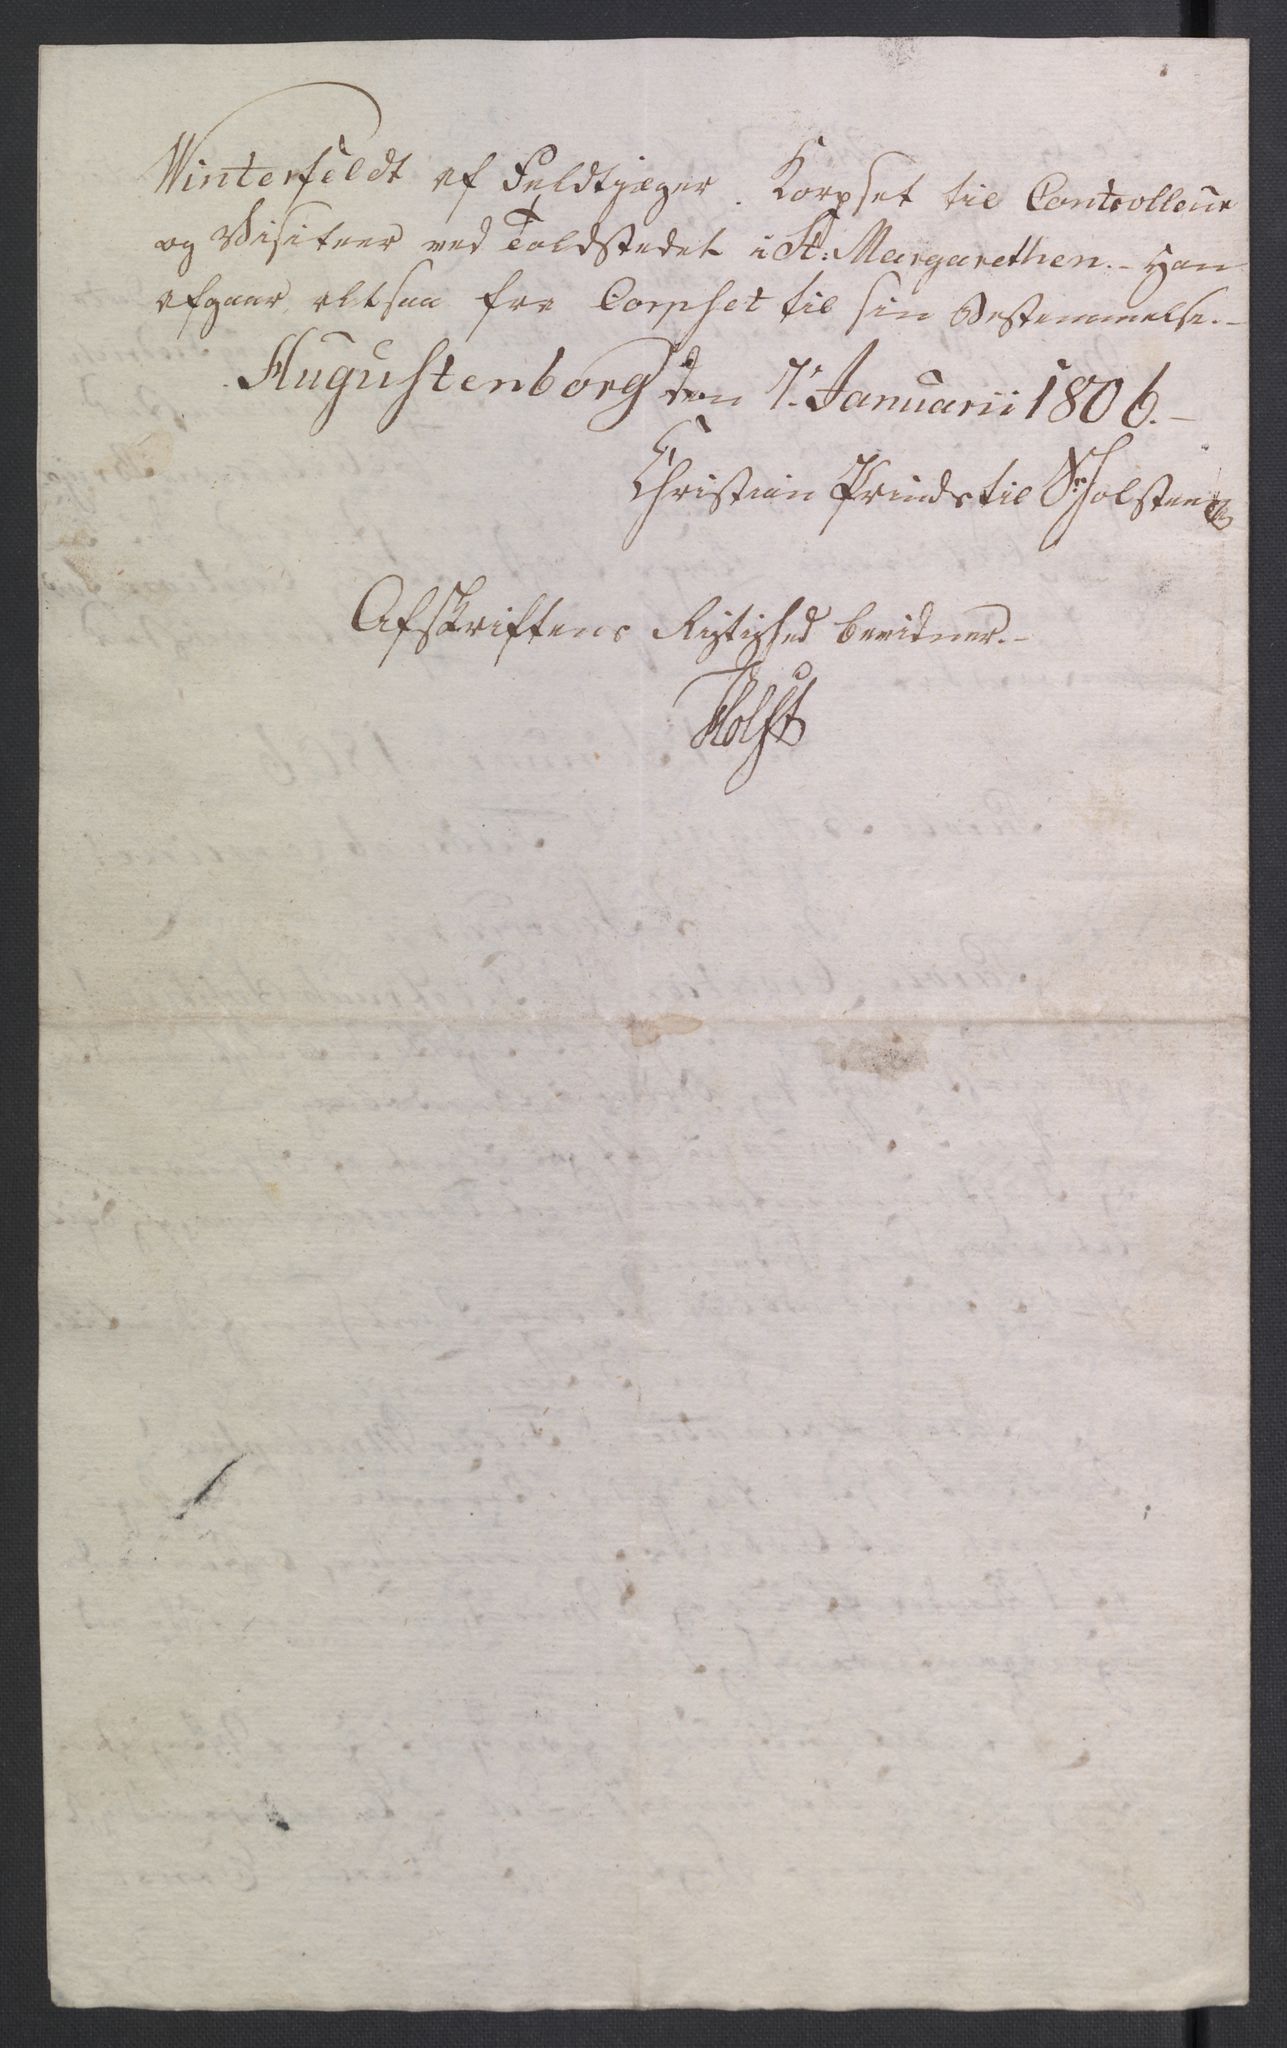 Winterfeldt af Feldtjæger Korpset til Controlleur
og Visiteur ved Toldstedet i St: Margarethen. - Han
afgaar altsaa fra Corpset til sin Bestemmelse. -
Augustenborg den 7. Januarii 1806. -
Christian Prinds til S. Holsteen
Afskriftens Rigtighed bevidner. -
Holst